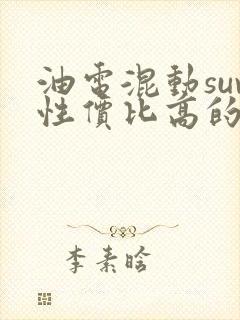 油電混動suv
性價比高的
李素晗